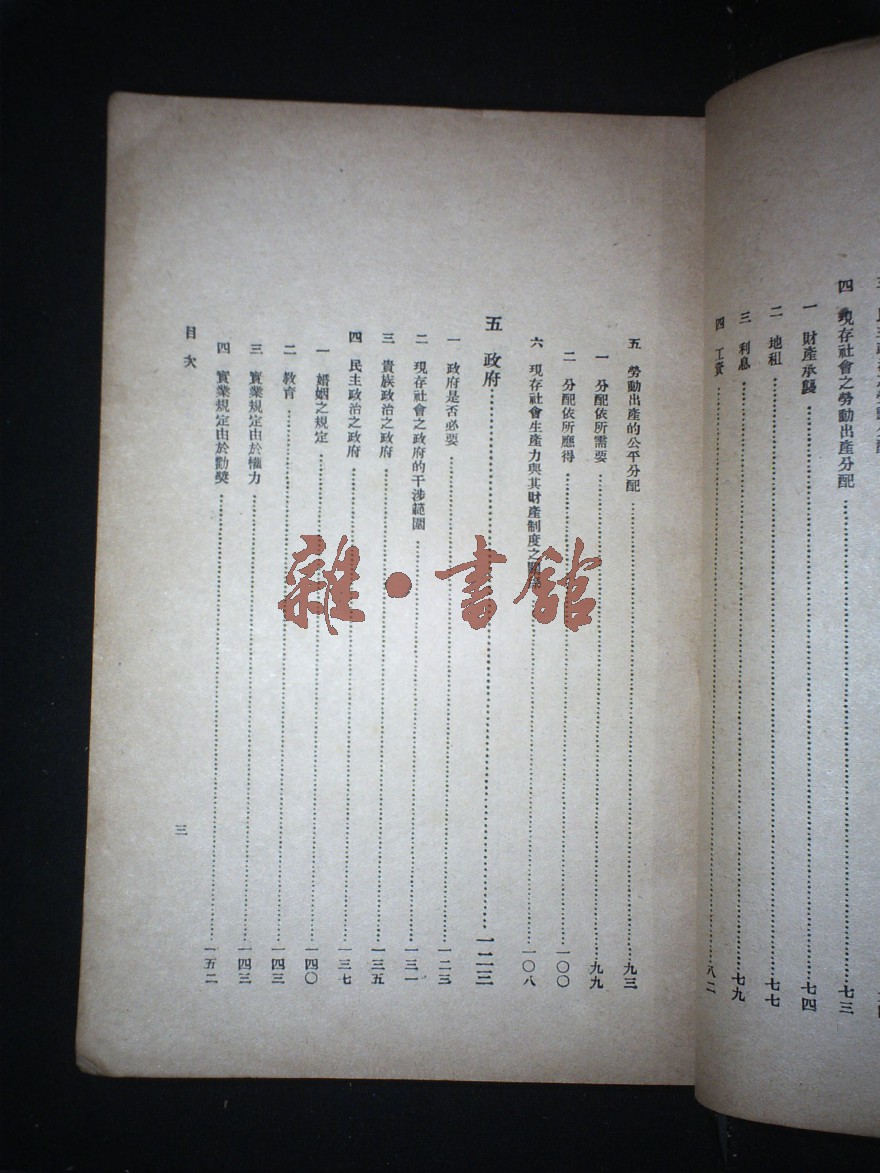 四　現存社會之勞動出產分配……七三
一　財產承襲……七四
二　地租……七七
三　利息……七九
四　工資……八二
五　勞動出產的公平分配……九三
一　分配依所需要……九九
二　分配依所應得……一〇〇
六　現存社會生產力與其財產制度之關係……一〇八
五　政府……一二三
一　政府是否必要……一二三
二　現存社會之政府的干涉範圍……一三一
三　貴族政治之政府……一三五
四　民主政治之政府……一三七
一　婚姻之規定……一四〇
二　教育……一四三
三　實業規定由於權力……一四三
四　實業規定由於勸獎……一五二
目次
三
雜·書館